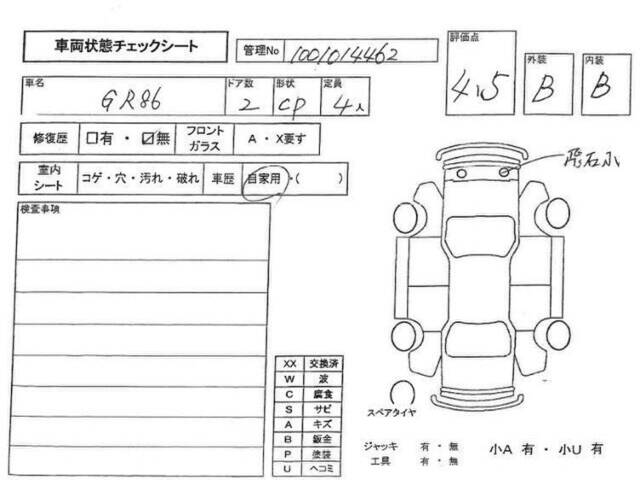 車両状態チェックシート
管理No 1001014462
評価点 4.5
外装 B
内装 B
車名 GR86
ドア数 2
形状 CP
定員 4人
修復歴 □有・☑無
フロントガラス A・X要す
室内シート コゲ・穴・汚れ・破れ
車歴 自家用・( )
飛石小
検査事項
XX 交換済
W 波
C 腐食
S サビ
A キズ
B 鈑金
P 塗装
U ヘコミ
スペアタイヤ
ジャッキ 有・無
工具 有・無
小A 有・小U 有